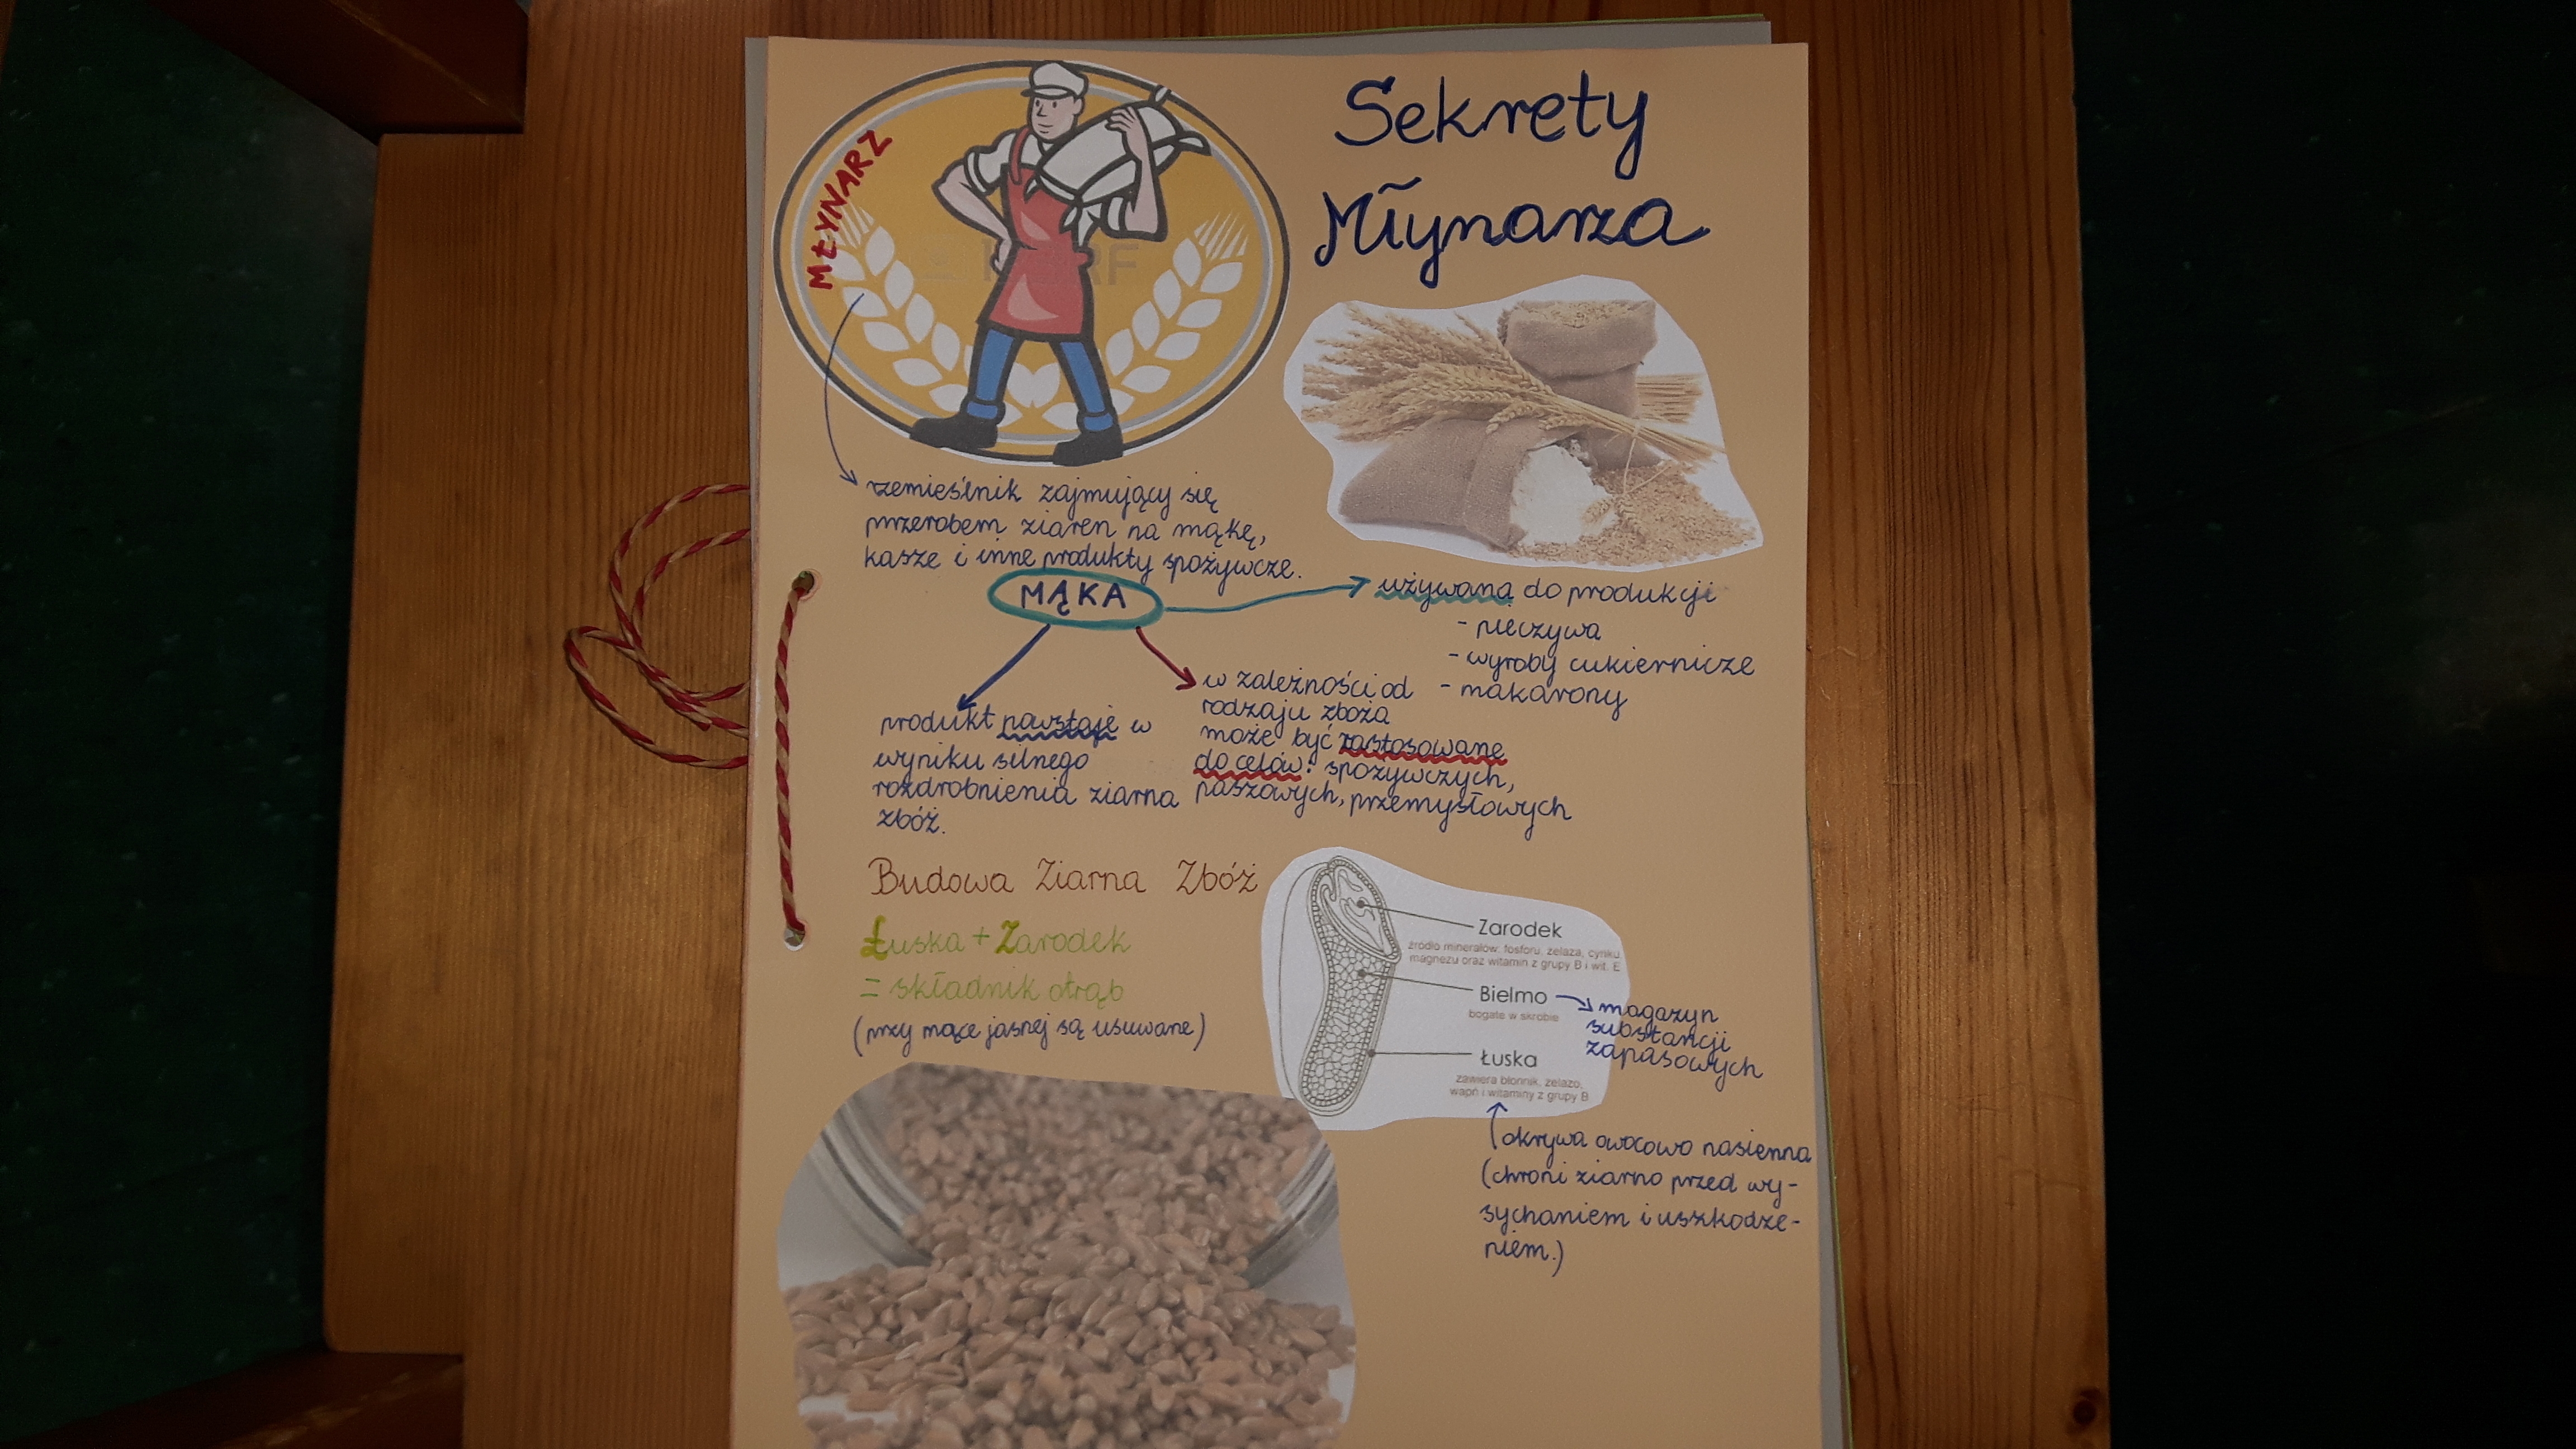 Sekrety
Młynarza
MŁYNARZ
rzemieślnik zajmujący się
przerobem ziaren na mąkę,
kasze i inne produkty spożywcze.
MĄKA
używana do produkcji
- pieczywa
- wyroby cukiernicze
- makarony
produkt powstaje w
wyniku silnego
rozdrobnienia ziarna
zbóż.
w zależności od
rodzaju zboża
może być zastosowane
do celów: spożywczych,
paszowych, przemysłowych
Budowa Ziarna Zbóż
Łuska + Zarodek
= składnik otrąb
(przy mące jasnej są usuwane)
Zarodek
źródło minerałów: fosforu, żelaza, cynku,
magnezu oraz witamin z grupy B i wit. E
Bielmo
bogate w skrobie
magazyn
substancji
zapasowych
Łuska
zawiera błonnik, żelazo,
wapń i witaminy z grupy B
okrywa owocowo nasienna
(chroni ziarno przed wy-
sychaniem i uszkodze-
niem.)